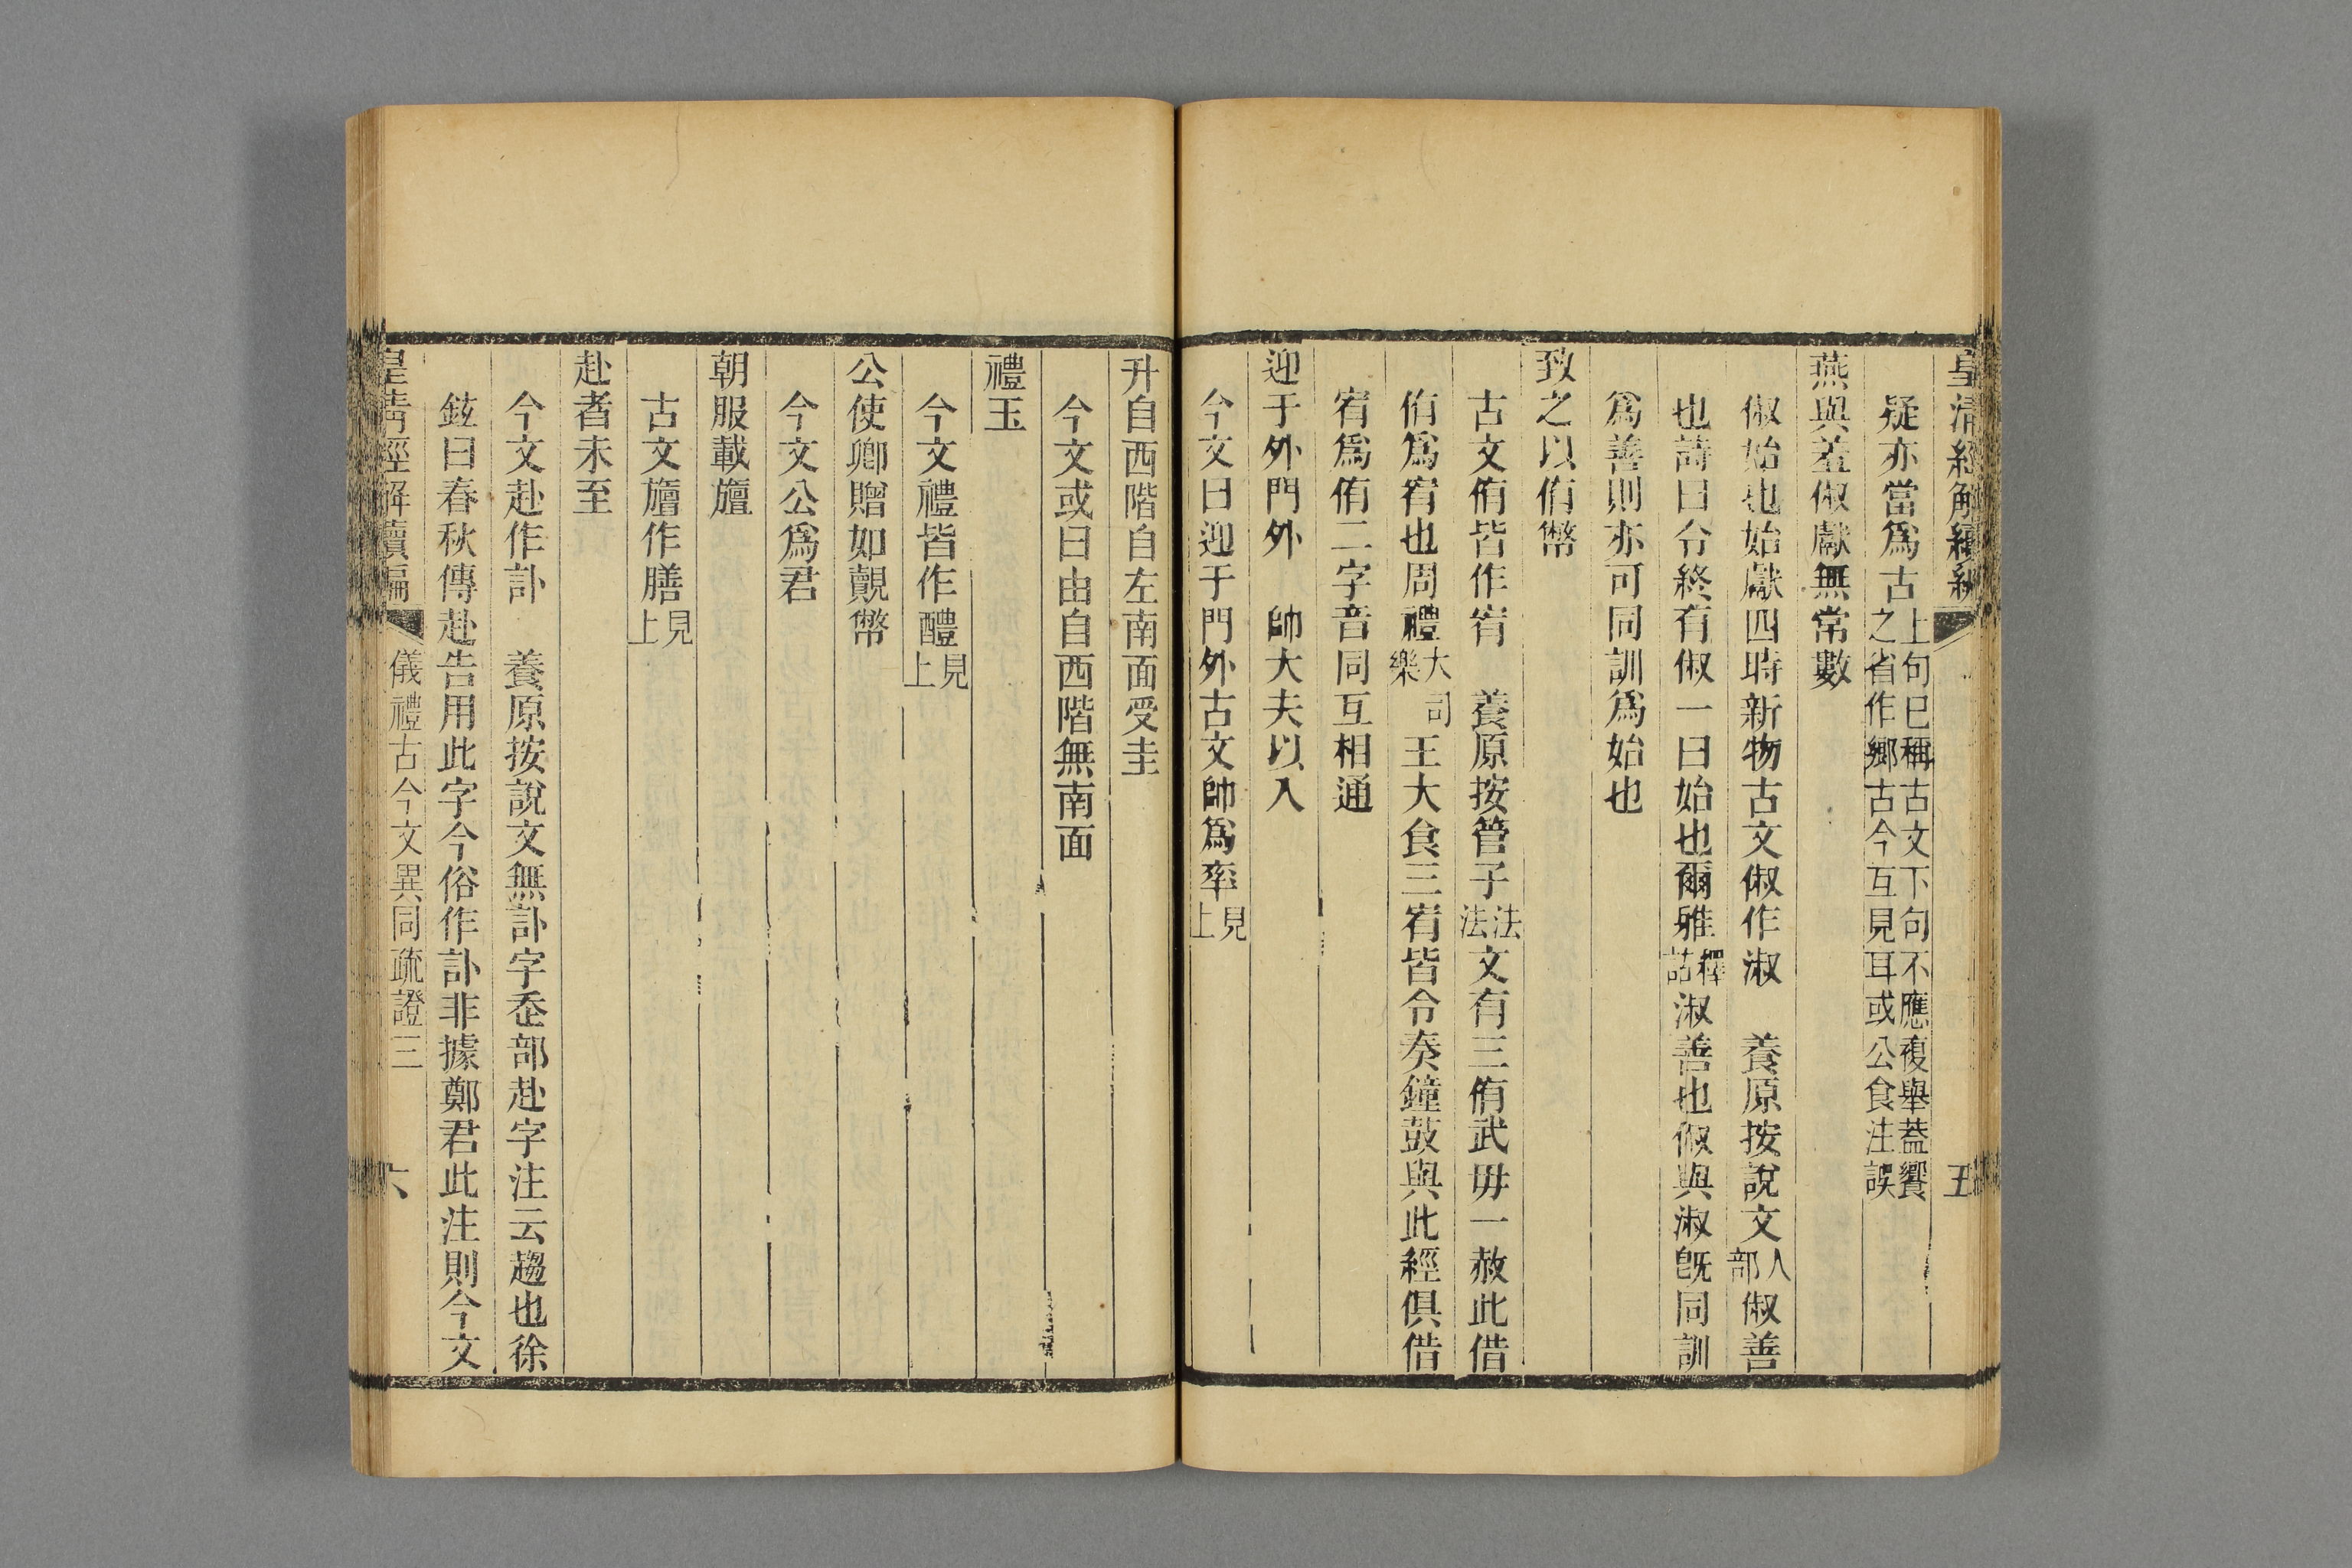 皇清經解續編　五
疑亦當為古上句已稱古文下句不應複舉蓋饗之省作鄉古今互見耳或公食注誤
燕與羞俶獻無常數
俶始也始獻四時新物古文俶作淑　養原按說文人部俶善
也詩曰令終有俶一曰始也爾雅釋詁淑善也俶與淑旣同訓
爲善則亦可同訓爲始也
致之以侑幣
古文侑皆作宥　養原按管子法法文有三侑武毋一赦此借
侑爲宥也周禮大司樂王大食三宥皆令奏鐘鼓與此經俱借
宥爲侑二字音同互相通
迎于外門外　帥大夫以入
今文曰迎于門外古文帥爲率見上
升自西階自左南面受圭
今文或曰由自西階無南面
禮玉
今文禮皆作醴見上
公使卿贈如覿幣
今文公爲君
朝服載旜
古文旜作膳見上
赴者未至
今文赴作訃　養原按說文無訃字乑部赴字注云趨也徐
鉉曰春秋傳赴告用此字今俗作訃非據鄭君此注則今文
皇淸經解續編　儀禮古今文異同疏證三　六